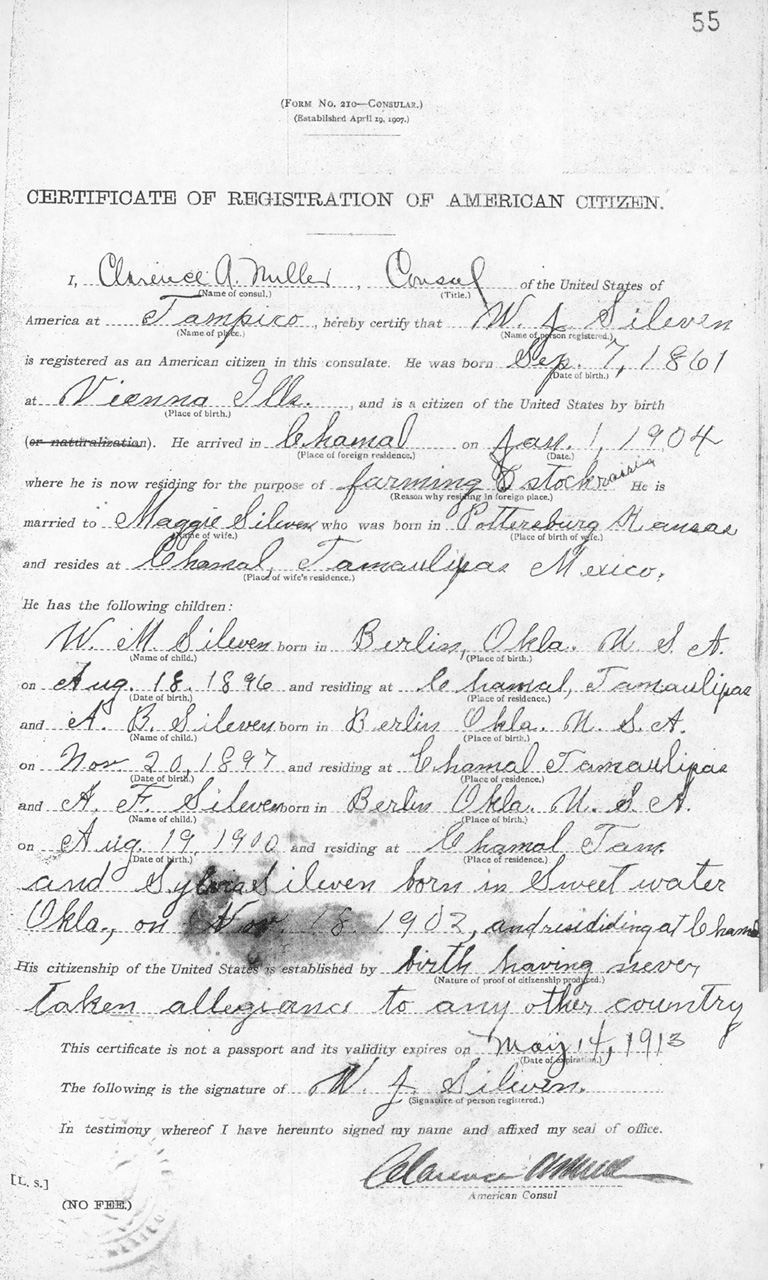 55
(FORM NO. 210—CONSULAR.)
(Established April 19, 1907.)
CERTIFICATE OF REGISTRATION OF AMERICAN CITIZEN.
I, Clarence A. Miller, Consul of the United States of
(Name of consul.) (Title.)
America at Tampico, hereby certify that W. J. Sileven
(Name of place.) (Name of person registered.)
is registered as an American citizen in this consulate. He was born Sep. 7, 1861
(Date of birth.)
at Vienna Ills., and is a citizen of the United States by birth
(Place of birth.)
(or naturalization). He arrived in Chamal on Jan. 1, 1904
(Place of foreign residence.) (Date.)
where he is now residing for the purpose of farming & stock raising He is
(Reason why residing in foreign place.)
married to Maggie Silven who was born in Pottersburg Kansas
(Name of wife.) (Place of birth of wife.)
and resides at Chamal, Tamaulipas Mexico.
(Place of wife's residence.)
He has the following children:
W. M Silven born in Berlin, Okla. U S A.
(Name of child.) (Place of birth.)
on Aug. 18. 1896 and residing at Chamal, Tamaulipas
(Date of birth.) (Place of residence.)
and A. B. Sileven born in Berlin Okla. U. S. A.
(Name of child.) (Place of birth.)
on Nov. 20, 1897 and residing at Chamal Tamaulipas
(Date of birth.) (Place of residence.)
and A. F. Sileven born in Berlin Okla. U. S. A.
(Name of child.) (Place of birth.)
on Aug. 19, 1900 and residing at Chamal Tam.
(Date of birth.) (Place of residence.)
and Sylvia Sileven born in Sweet water
Okla., on Nov. 18 1902, and resididing at Chamal
His citizenship of the United States is established by birth having never
(Nature of proof of citizenship produced.)
taken allegiance to any other country
This certificate is not a passport and its validity expires on May 14, 1913
(Date of expiration.)
The following is the signature of W. J. Sileven.
(Signature of person registered.)
In testimony whereof I have hereunto signed my name and affixed my seal of office.
Clarence A Miller
[L. S.]
American Consul
(NO FEE.)
MEXICO